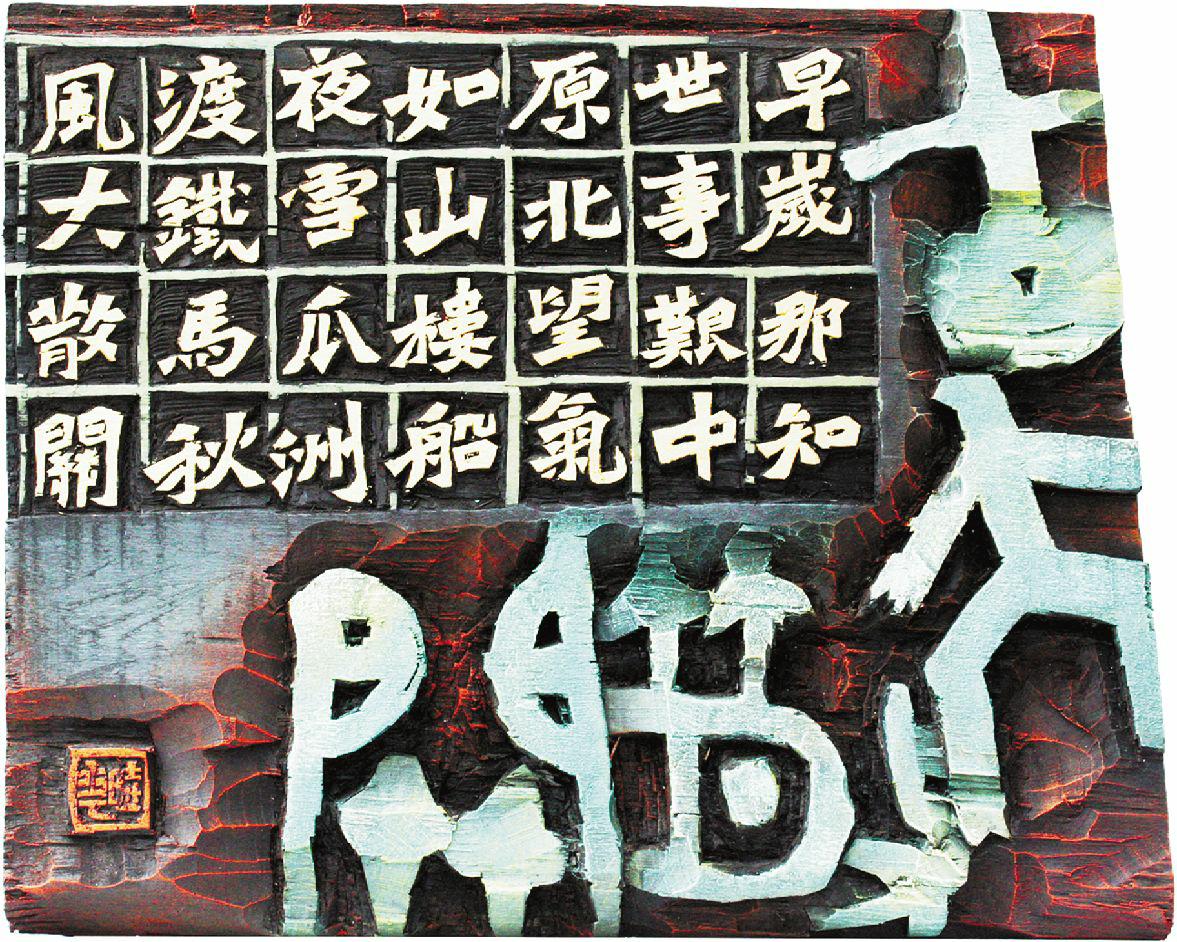 早歲那知
世事艱中
原北望氣
如山樓船
夜雪瓜洲
渡鐵馬秋
風大散關